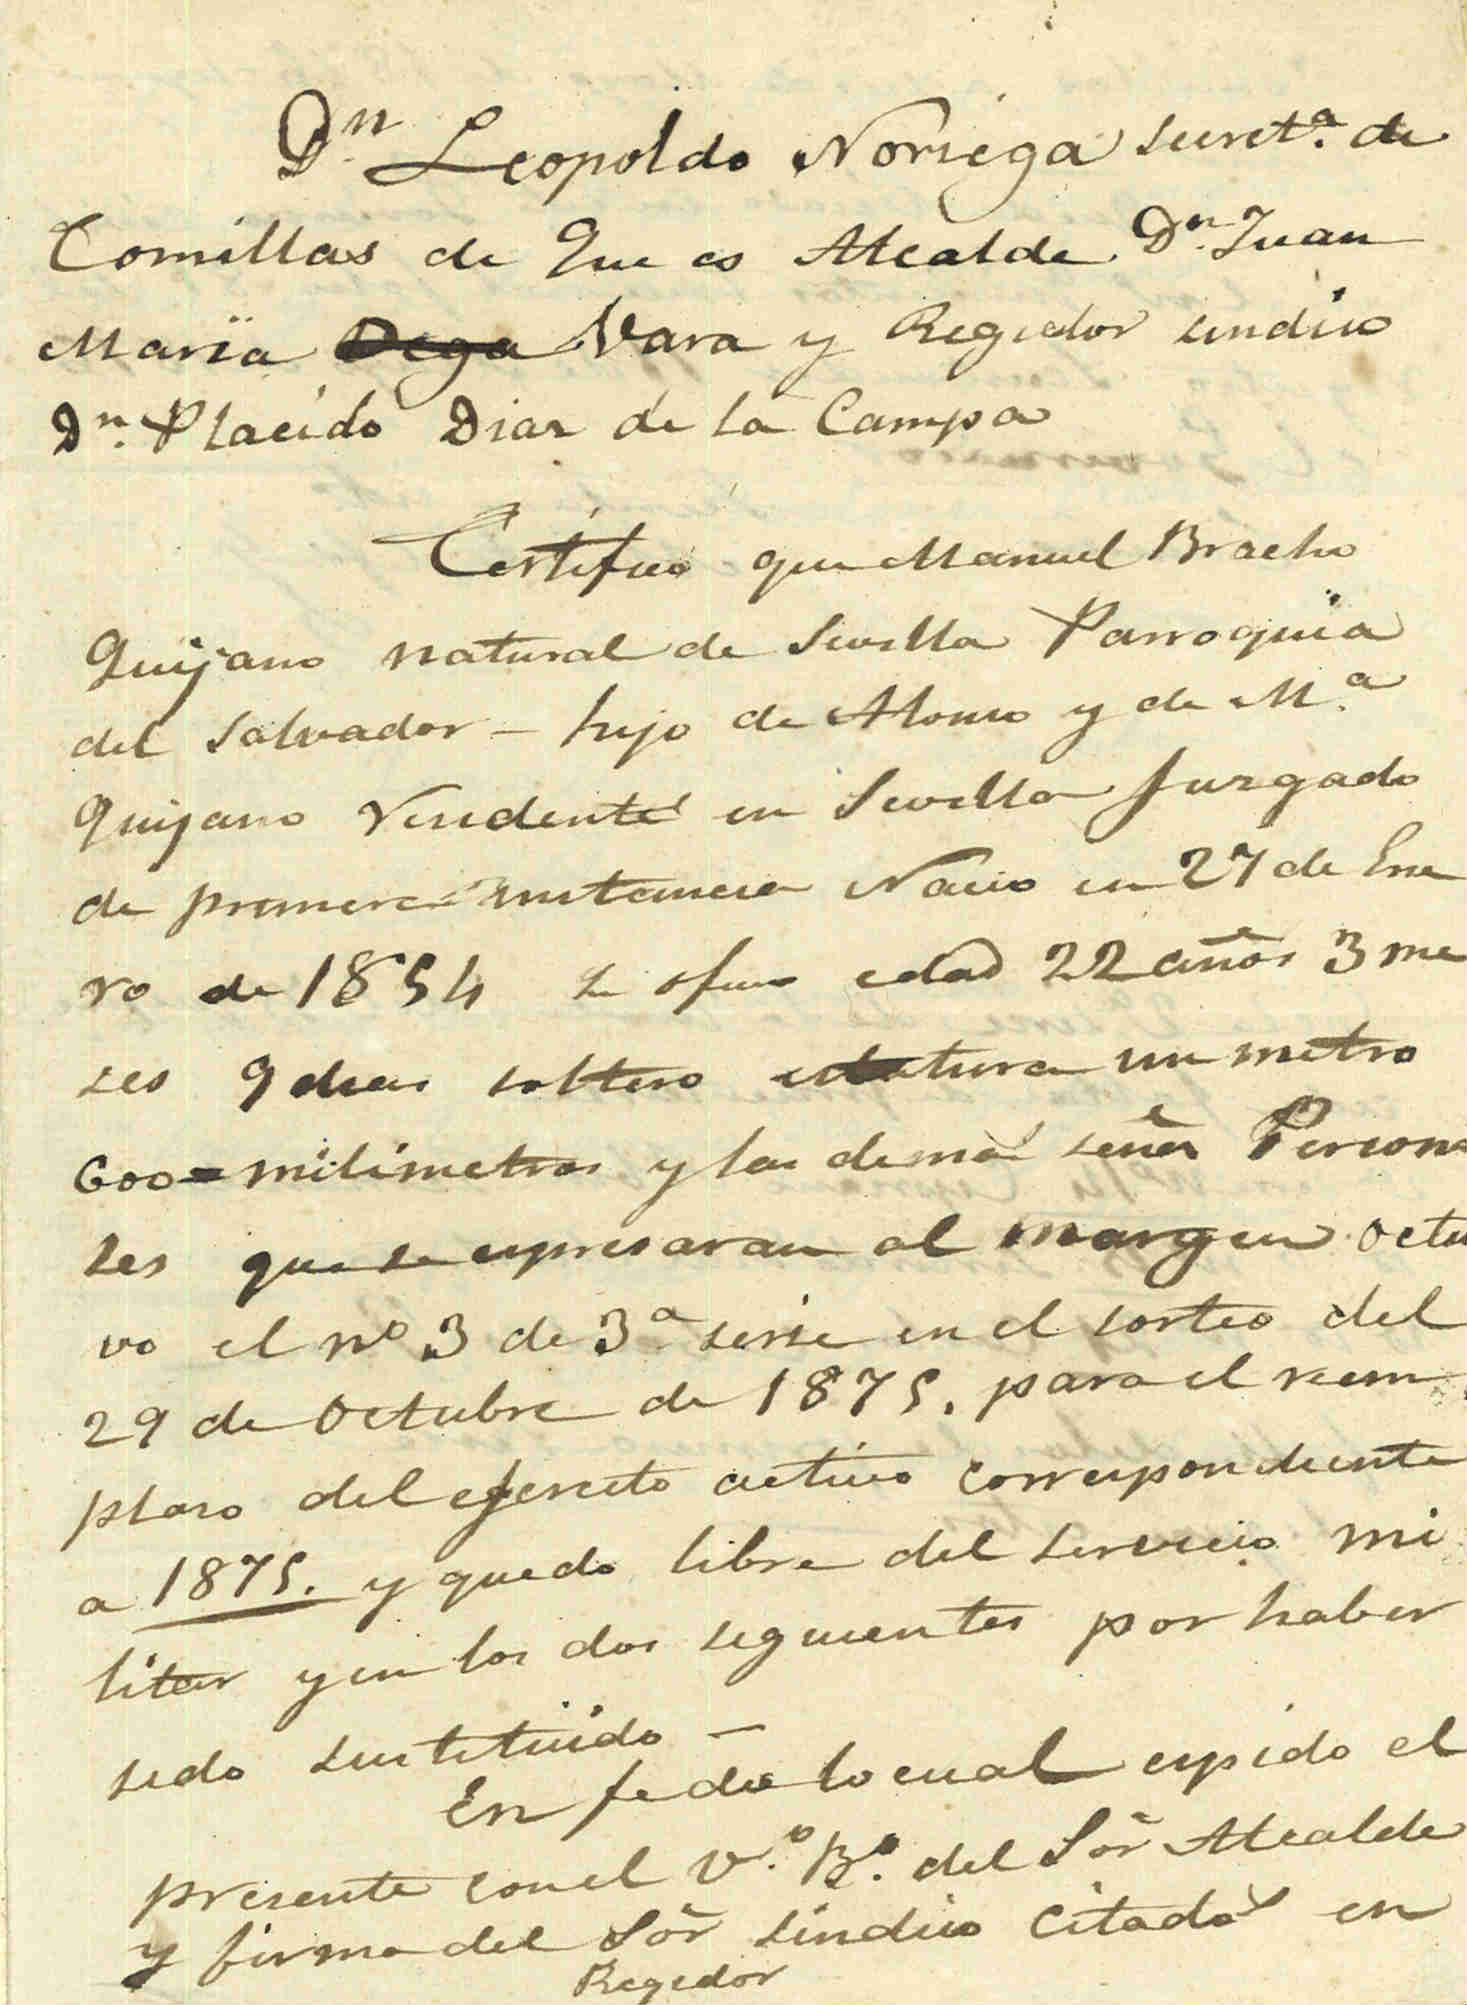 Dn. Leopoldo Noriega secret.ª de
Comillas de Que es Alcalde Dn. Juan
Maria Vega Vara y Regidor sindico
Dn. Placido Diaz de la Campa
Certifico que Manuel Bracho
Quijano natural de Sevilla Parroquia
del Salvador – hijo de Alonso y de M.ª
Quijano residente en Sevilla Juzgado
de primera instancia Nacio en 27 de Ene
ro de 1854 edad 22 años 3 me
ses 9 dias soltero estatura un metro
600 = milimetros y las demas señas Persona
les que se espresaran al margen
vo el nº 3 de 3ª serie en el sorteo del
29 de Octubre de 1875. para el reem
plazo del ejercito activo correspondiente
a 1875. y quedo libre del servicio mi
litar y en los dos siguientes por haber
sido sustituido –
En fe de lo cual espido el
presente con el V.º B.º del Sor Alcalde
y firma del Sor sindico citados en
Regidor